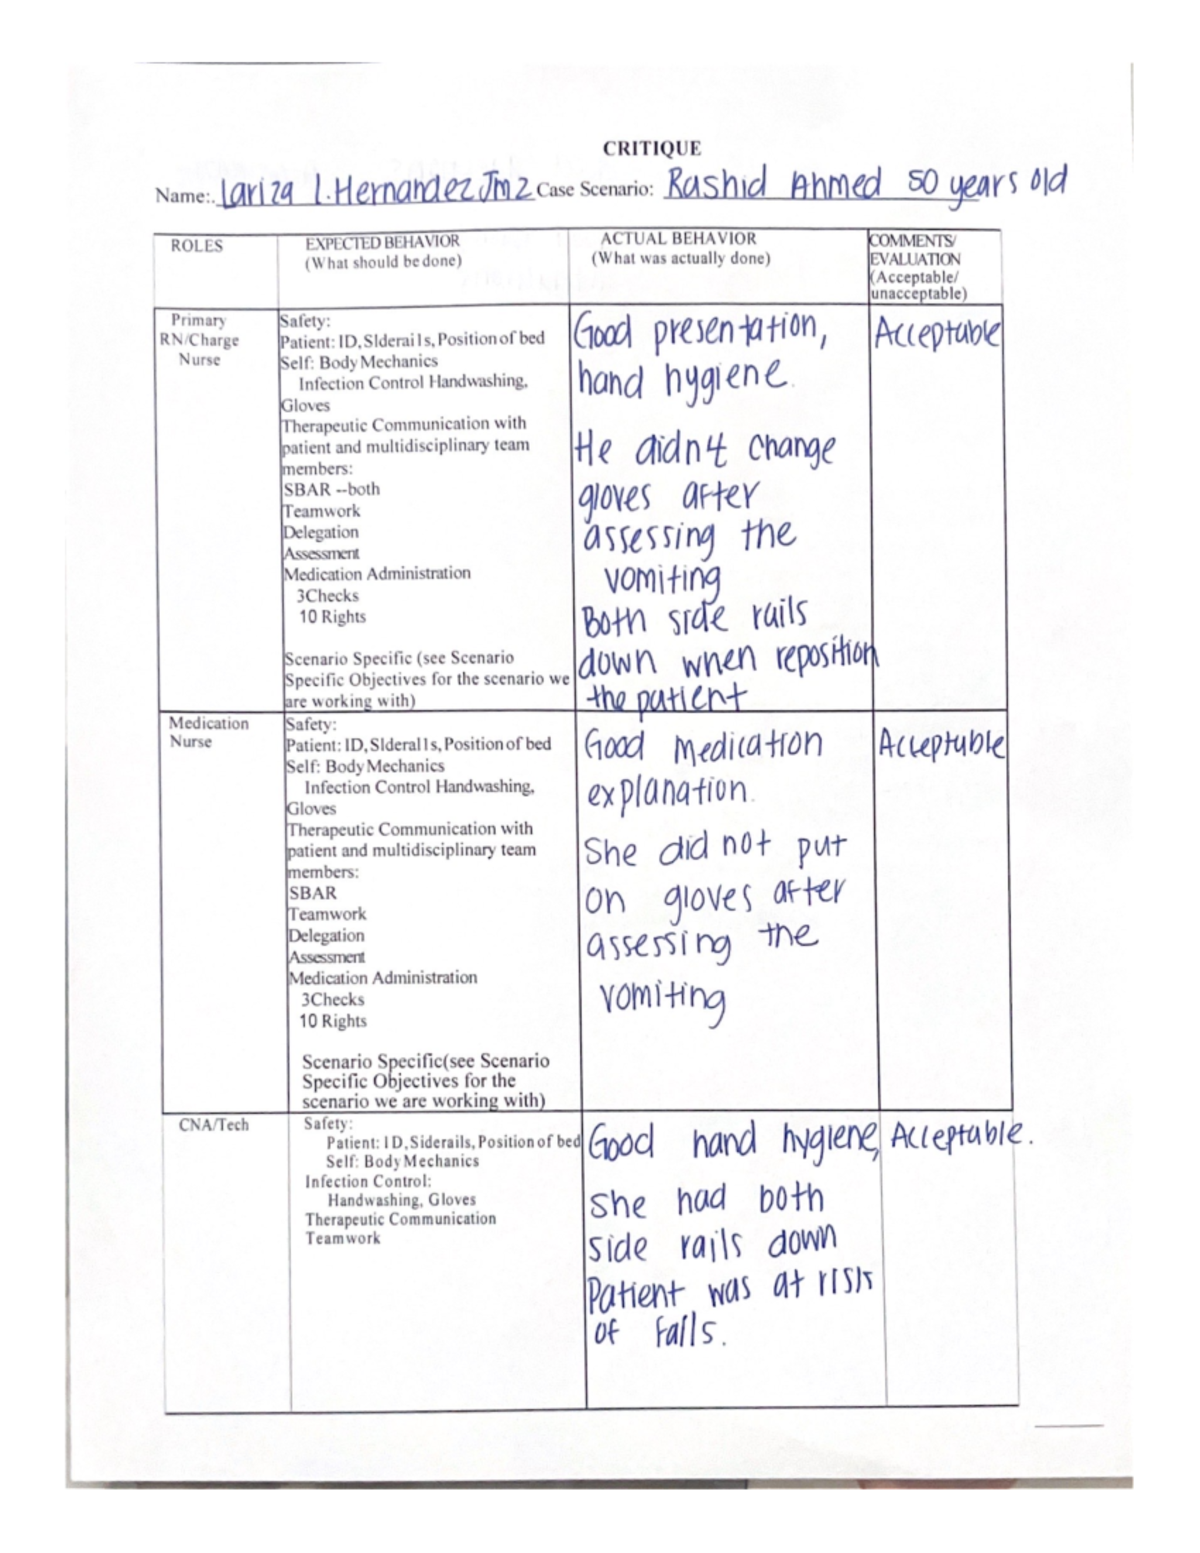 CRITIQUE
Name:. Lariza L. Hernandez Jm2 Case Scenario: Rashid Ahmed 50 years old
ROLES
EXPECTED BEHAVIOR
(What should be done)
ACTUAL BEHAVIOR
(What was actually done)
COMMENTS/
EVALUATION
(Acceptable/
unacceptable)
Primary
RN/Charge
Nurse
Safety:
Patient: ID, SIderails, Position of bed
Self: Body Mechanics
Infection Control Handwashing,
Gloves
Therapeutic Communication with
patient and multidisciplinary team
members:
SBAR --both
Teamwork
Delegation
Assessment
Medication Administration
3Checks
10 Rights
Scenario Specific (see Scenario
Specific Objectives for the scenario we
are working with)
Good presentation,
hand hygiene.
He didn't change
gloves after
assessing the
vomiting
Both side rails
down when reposition
the patient
Acceptable
Medication
Nurse
Safety:
Patient: ID, SIderails, Position of bed
Self: Body Mechanics
Infection Control Handwashing,
Gloves
Therapeutic Communication with
patient and multidisciplinary team
members:
SBAR
Teamwork
Delegation
Assessment
Medication Administration
3Checks
10 Rights
Scenario Specific(see Scenario
Specific Objectives for the
scenario we are working with)
Good medication
explanation.
She did not put
on gloves after
assessing the
vomiting
Acceptable
CNA/Tech
Safety:
Patient: ID, Siderails, Position of bed
Self: Body Mechanics
Infection Control:
Handwashing, Gloves
Therapeutic Communication
Teamwork
Good hand hygiene,
She had both
side rails down
Patient was at risk
of Falls.
Acceptable.